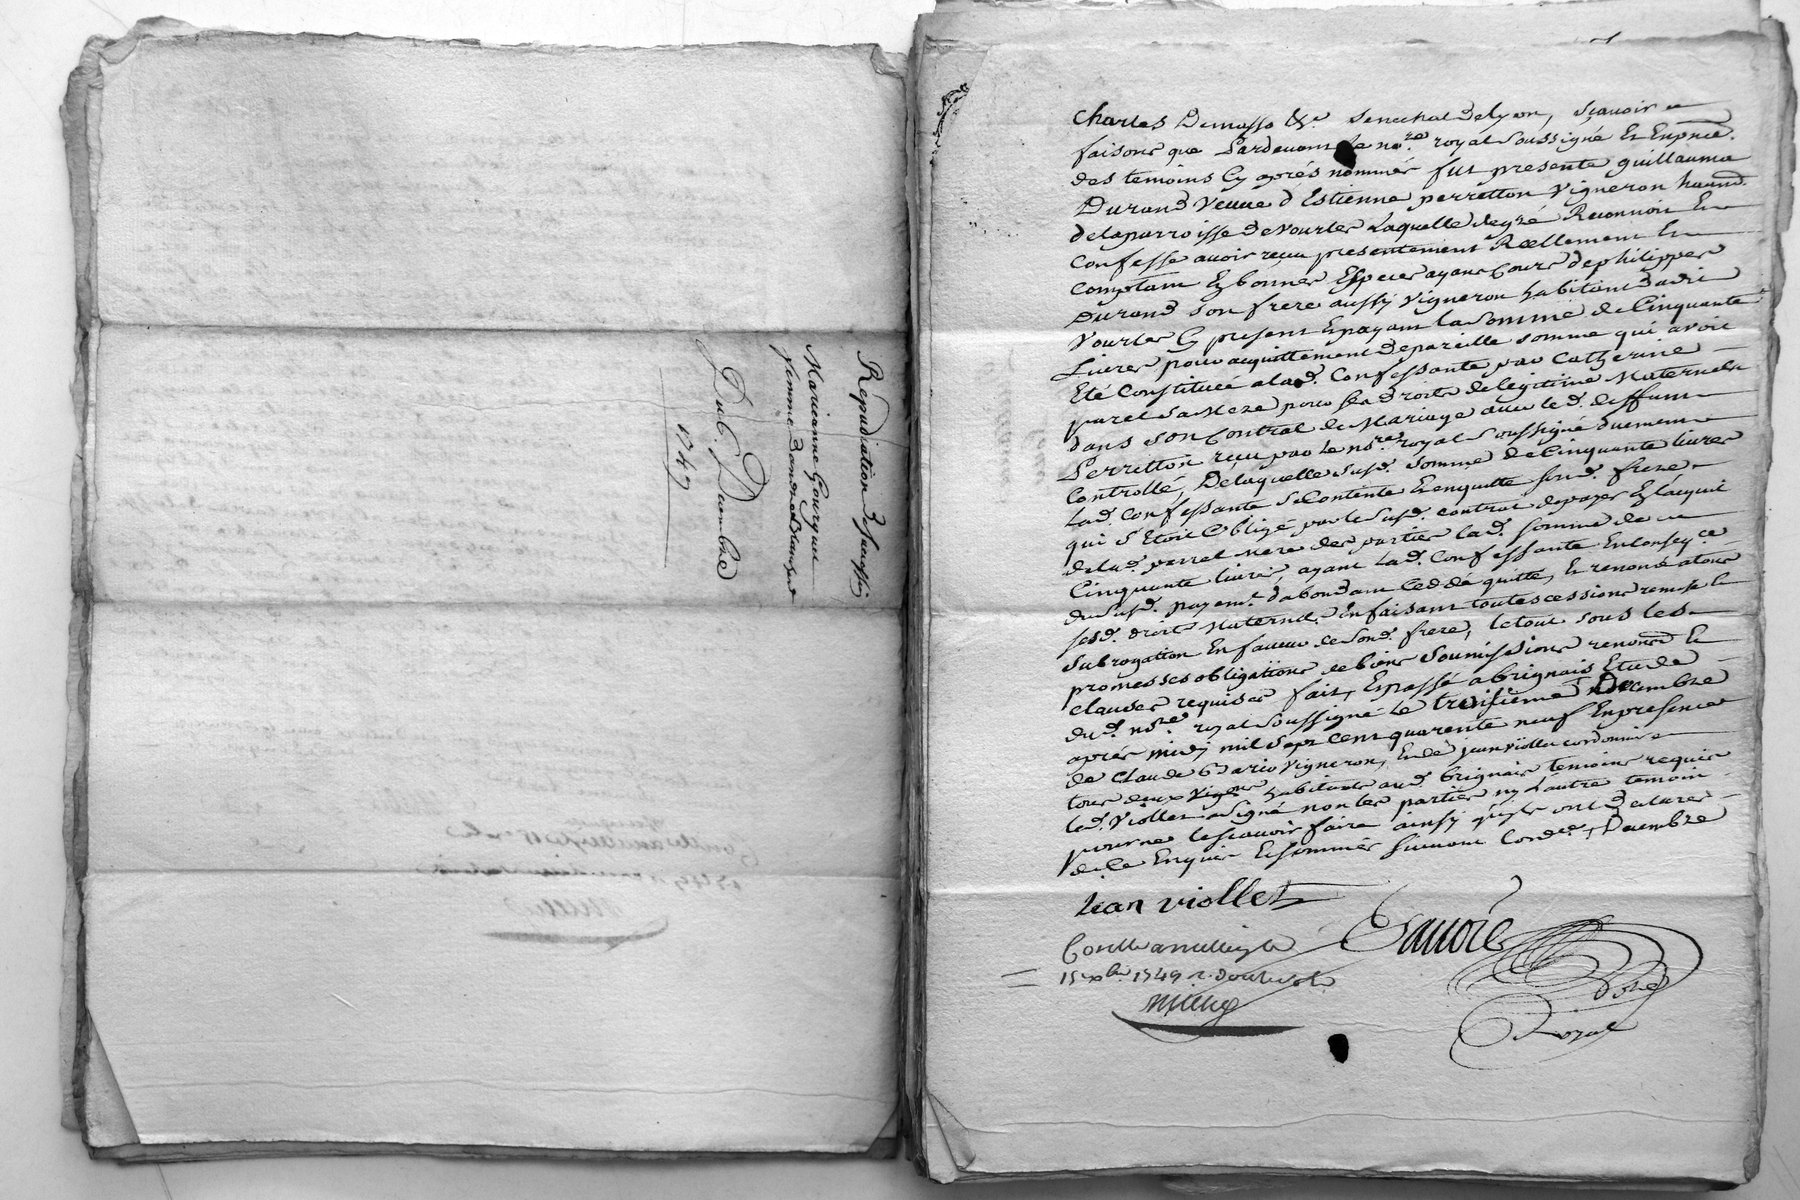 Repudiation de success.
Marieanne Gourguer
femme Dandré Blanchet
Du 6.e Decembre
1749
Charles Demasso &c. Senechal de lyon, Sçavoir
faisons que Pardevant Le no.re royal Soussigné Et En pnce.
des temoins Cy aprés nommés fut presente guillauma
Durand Veuve d'Estienne perretton Vigneron habit.
de la parroisse de Vourles Laquelle de gré Reconnoit Et
Confesse avoir reçu presentement Reellement Et
Comptant En bonnes Especes ayant Cours de philippes
Durand Son frere aussy Vigneron habitant dudit
Vourles Cy present Et payant la Somme de Cinquante
Livres pour acquittement de pareille Somme qui avoit
Eté Constituée a lad. Confessante par Catherine
parret Sa Mere pour Ses droits de legitime Maternels
dans Son Contrat de Mariage avec led. deffunt
Perretton reçu par Le no.re royal Soussigné duement
Controllé, De laquelle Susd. Somme de Cinquante livres
Lad. Confessante Se Contente Et En quitte Sond. frere
qui S'Etoit obligé par le Susd. contrat de payer En l'acquit
de lad. parret Mere des parties lad. Somme de
Cinquante livres, ayant Lad. Confessante En Conseq.ce
du Susd. payem.t d'abondant Cedé quitté, Et renoncé a tous
Sesd. droits Maternels, En faisant toutes cessions remise Et
Subrogation En faveur de Sond. frere, le tout Sous les
promesses obligations de biens Soumissions renonc. Et
Clauses requises fait, Et passé a brignais Etude
dud. no.re royal Soussigné Le troisieme Decembre
aprés midy mil Sept Cent quarente neuf En presence
de Claude Vigneron, Et de jean Viollet cordonnier
tous deux habitants aud. brignais temoins requis
led. Viollet a Signé non les parties ny L'autre temoin
pour ne le Sçavoir faire ainsy qu'ils ont declarés
de Ce Enquis Et Sommés Suivant Decembre
Jean viollet
Savoie
no.re
Royal
Controllé a
15 xbre 1749 r. douze sols